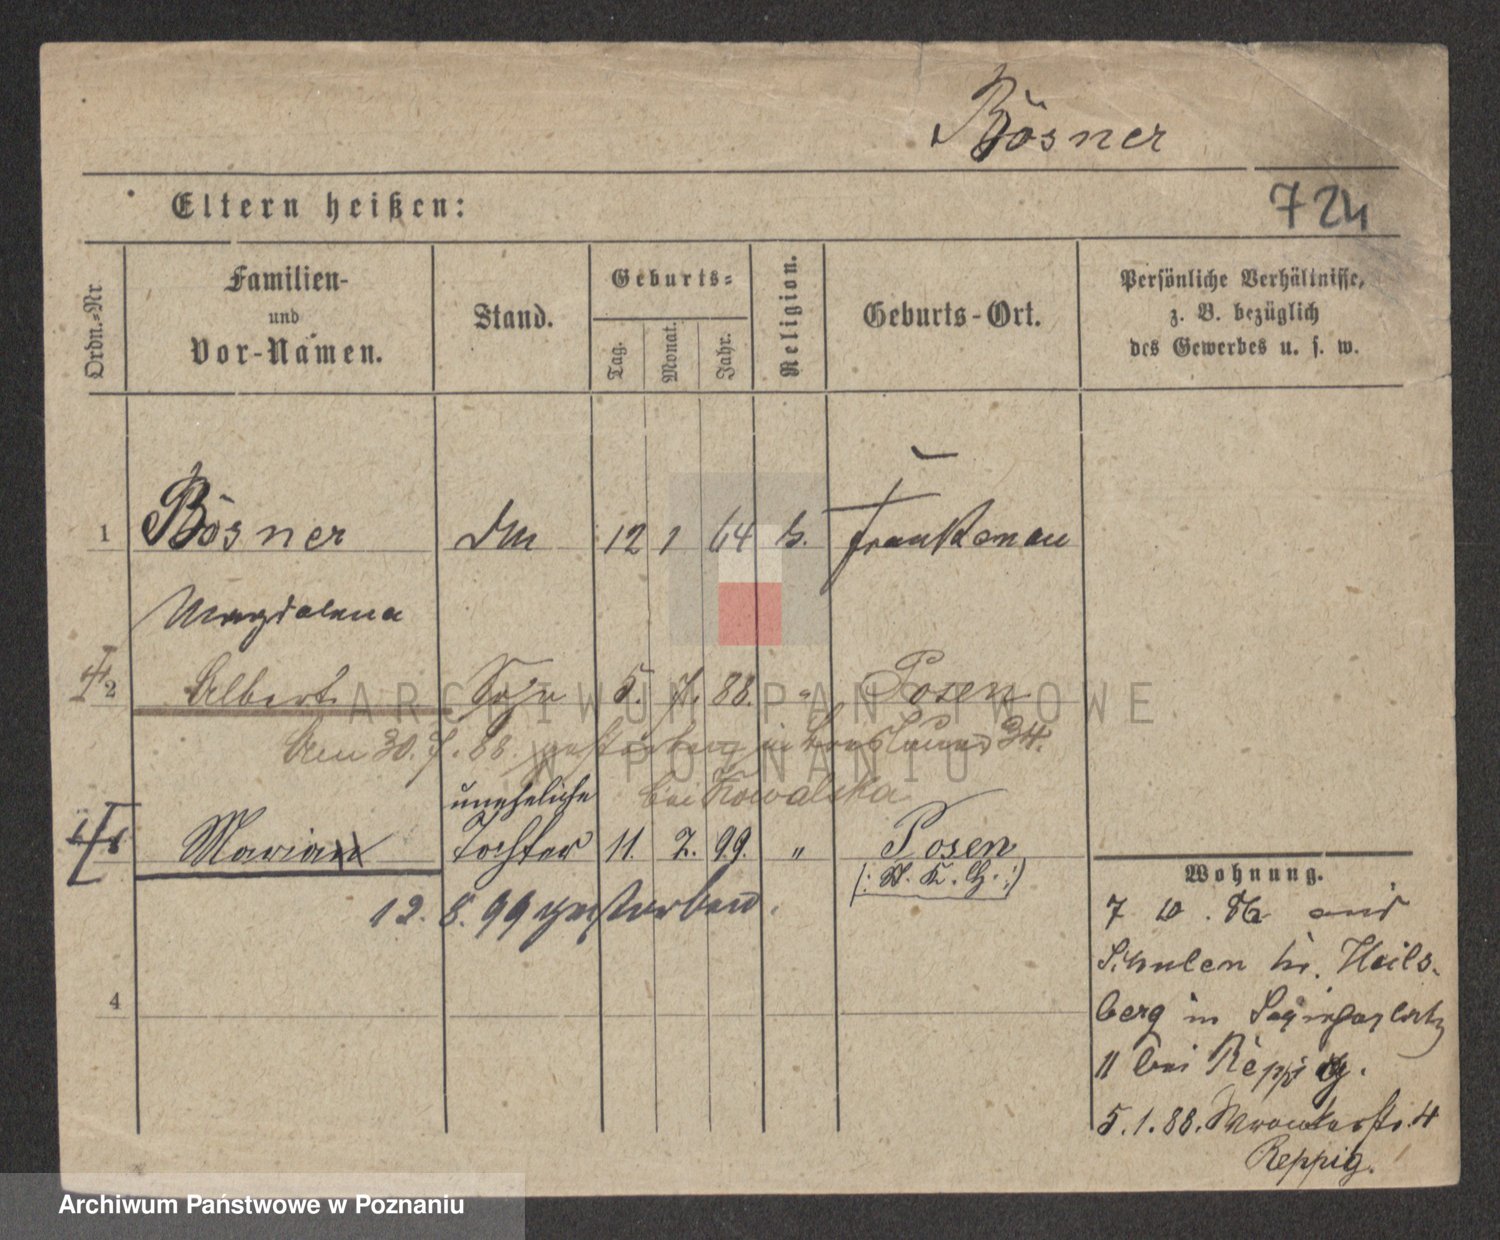 Bösner
Eltern heißen:
724
Ordn.-Nr
Familien-
und
Vor-Namen.
Stand.
Geburts-
Tag.
Monat.
Jahr.
Religion.
Geburts-Ort.
Persönliche Verhältnisse,
z. B. bezüglich
des Gewerbes u. s. w.
1 Bösner 12 1 64 Frankenau
Magdalena
2 Albert Sohn 5. 7. 88. Posen
Den 30. 7. 88. gestorben in 34.
uneheliche bei Kowalska
Maria Tochter 11. 2. 99. " Posen
12. 8. 99 gestorben.
4
Wohnung.
7 10. 86 aus
Schulen Kr. Heils-
berg in Sapiehaplatz
11 bei Reppig.
5.1.88. Wronkerstr. 4
Reppig.
ARCHIWUM PAŃSTWOWE
W POZNANIU
Archiwum Państwowe w Poznaniu